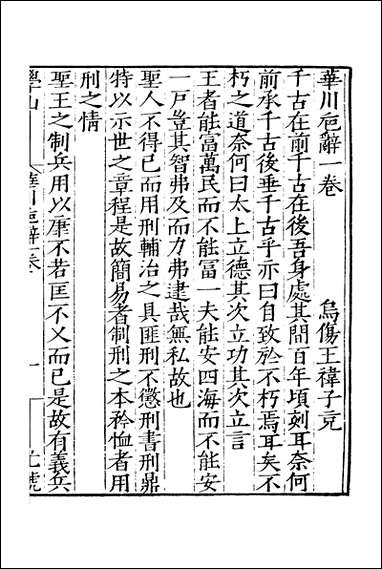 華川卮辭一卷　　烏傷王禕子充
千古在前千古在後吾身處其間百年頃刻耳奈何
前承千古後垂千古乎亦曰自致於不朽焉耳矣不
朽之道奈何曰太上立德其次立功其次立言
王者能富萬民而不能富一夫能安四海而不能安
一戶豈其智弗及而力弗逮哉無私故也
聖人不得已而用刑輔治之具匪刑不懲刑書刑鼎
特以示世之章程是故簡易者制刑之本矜恤者用
刑之情
聖王之制兵用以康不若匡不乂而已是故有義兵
學山　華川卮辭卷　一